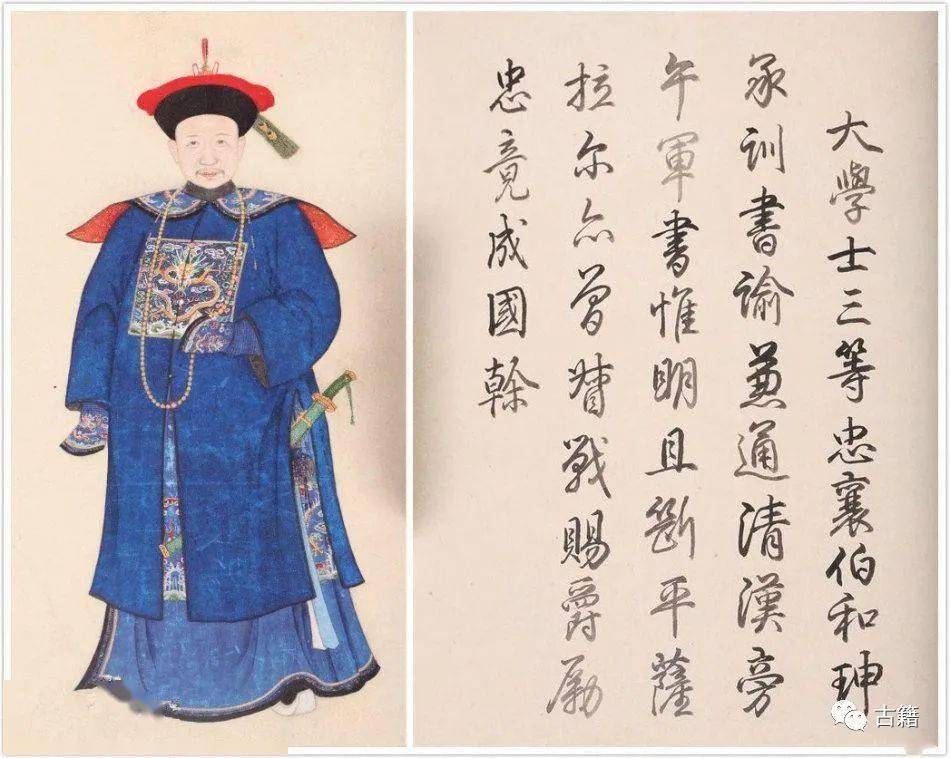 大學士三等忠襄伯和珅
承訓書諭兼通清漢旁
午軍書惟明且斷平薩
拉尔亦曽督戰賜爵勵
忠竟成國幹
古籍